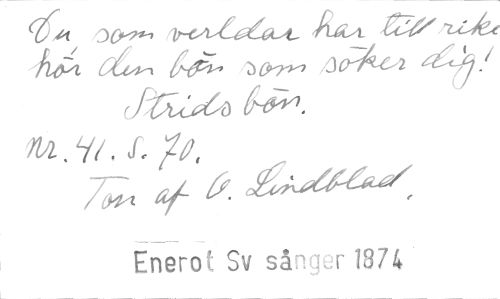 Du som verldar har till rike
hör den bön som söker dig!
Stridsbön.
Nr. 41. S. 70.
Ton af O. Lindblad.
Enerot Sv sånger 1874